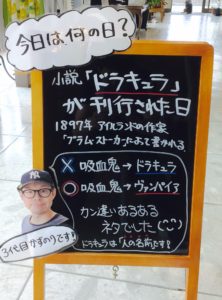 今日は何の日?
小説「ドラキュラ」
が刊行された日
1897年 アイルランドの作家
「ブラム・ストーカーによって書かれる
× 吸血鬼→ドラキュラ
○ 吸血鬼→ヴァンパイア
カン違いあるある
ネタでした(^^;)
ドラキュラは「人の名前」です!
3代目かずのりです!